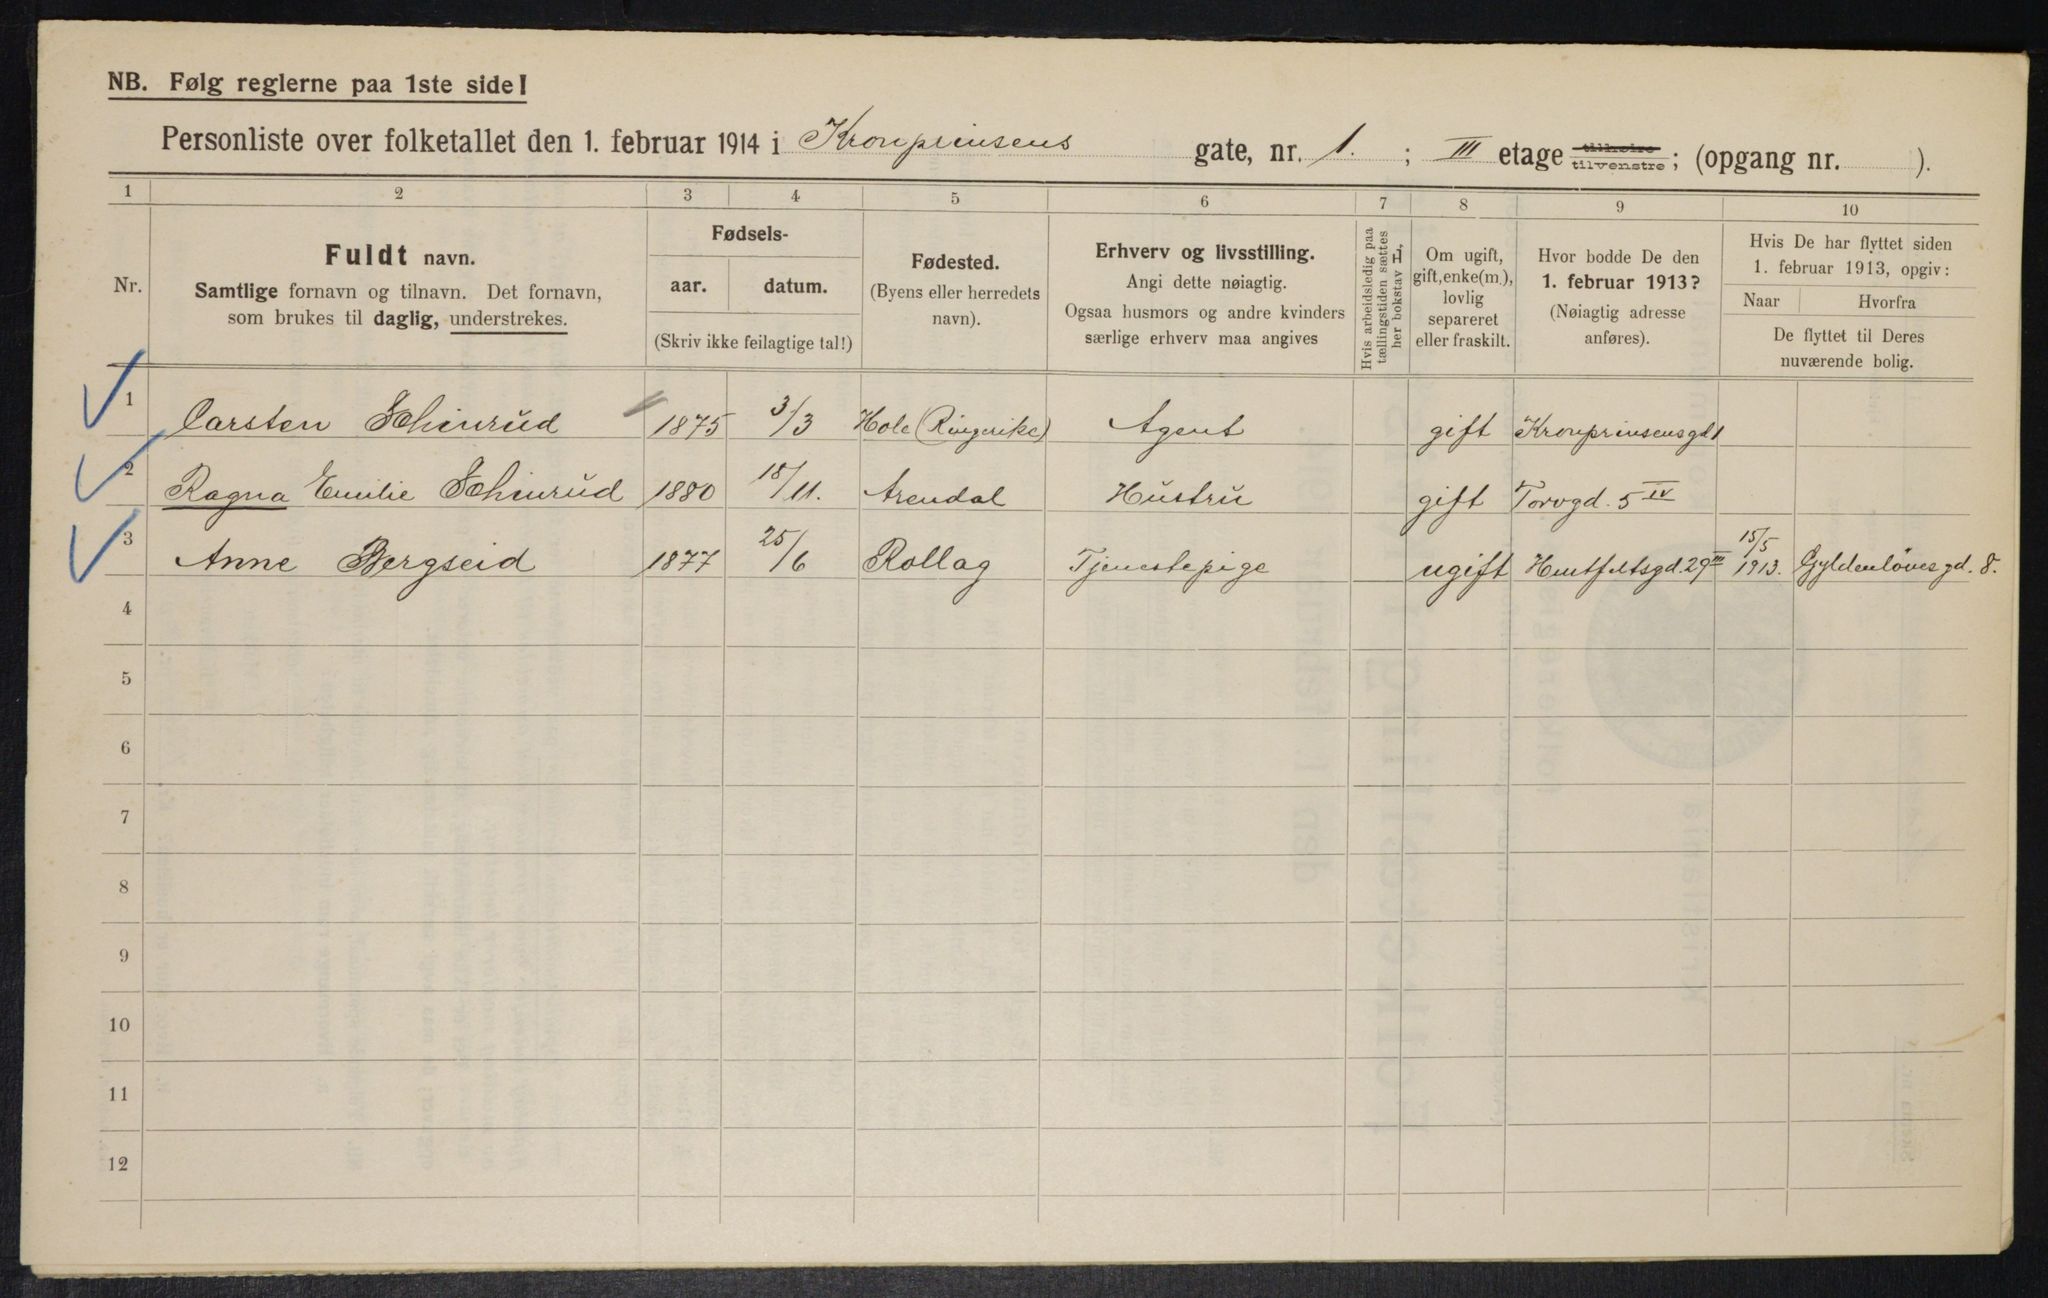 NB. Følg reglerne paa 1ste side!
Personliste over folketallet den 1. februar 1914 i Kronprinsens gate, nr. 1. ; III etage tilhøire tilvenstre; (opgang nr. ).
1 2 3 4 5 6 7 8 9 10
Nr.
Fuldt navn.
Samtlige fornavn og tilnavn. Det fornavn,
som brukes til daglig, understrekes.
Fødsels-
aar. datum.
(Skriv ikke feilagtige tal!)
Fødested.
(Byens eller herredets
navn).
Erhverv og livsstilling.
Angi dette nøiagtig.
Ogsaa husmors og andre kvinders
særlige erhverv maa angives
Hvis arbeidsledig paa
tællingstiden sættes
her bokstav L.
Om ugift,
gift, enke(m.),
lovlig
separeret
eller fraskilt.
Hvor bodde De den
1. februar 1913?
(Nøiagtig adresse
anføres).
Hvis De har flyttet siden
1. februar 1913, opgiv:
Naar Hvorfra
De flyttet til Deres
nuværende bolig.
1 Carsten Schinrud 1875 3/3 Hole (Ringerike) Agent gift Kronprinsensgd 1
2 Ragna Emilie Schinrud 1880 18/11. Arendal Hustru gift Torvgd. 5 IV
3 Anne Bergseid 1877 25/6 Rollag Tjenestepige ugift Huitfeltsgd. 29 III 15/5 1913. Gyldenløvesgd. 8.
4
5
6
7
8
9
10
11
12